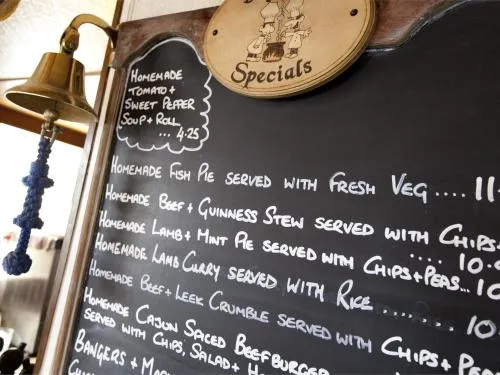 Specials
HOMEMADE
TOMATO +
SWEET PEPPER
SOUP + ROLL
... 4.25
HOMEMADE FISH PIE SERVED WITH FRESH VEG .... 11.
HOMEMADE BEEF + GUINNESS STEW SERVED WITH CHIPS
.... 10.
HOMEMADE LAMB + MINT PIE SERVED WITH CHIPS + PEAS... 10
HOMEMADE LAMB CURRY SERVED WITH RICE
HOMEMADE BEEF + LEEK CRUMBLE SERVED WITH ....... 10
HOMEMADE CAJUN SPICED BEEFBURGER CHIPS + PEA
SERVED WITH CHIPS, SALAD + H
BANGERS + MA